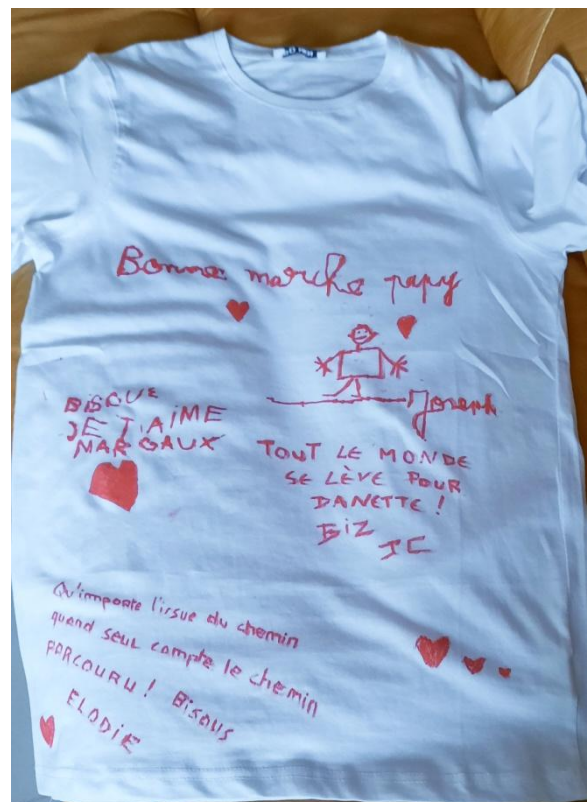 Bonne marche papy
Joseph
BISOUE
JE T'AIME
MARGAUX
TOUT LE MONDE
SE LÈVE POUR
DANETTE !
BiZ
JC
Qu'importe l'issue du chemin
quand seul compte le chemin
PARCOURU ! BISOUS
ELODIE